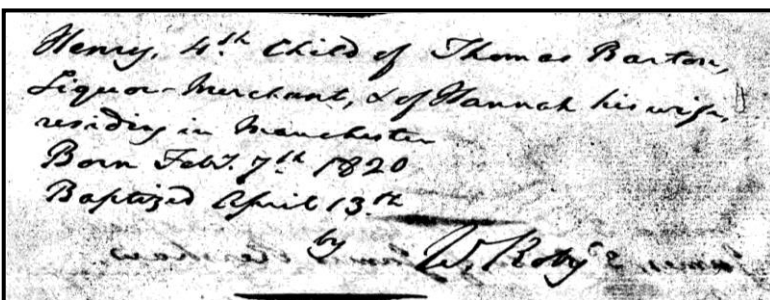 Henry, 4th Child of Thomas Barton,
Liquor-Merchant, & of Hannah his wife,
residing in Manchester
Born Feby. 7th 1820
Baptized April 13th
by W. Roby